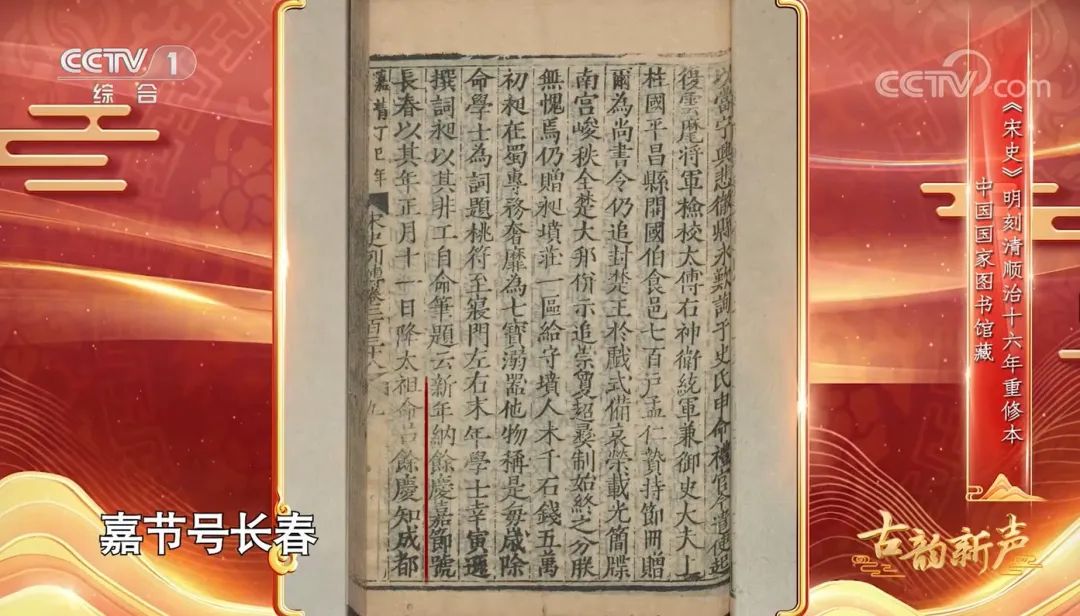 CCTV 1
综合
CCTV.com
《宋史》明刻清顺治十六年重修本
中国国家图书馆藏
復雲麾將軍檢校太傅右神衛統軍兼御史大夫上
柱國平昌縣開國伯食邑七百戸孟仁贄持節冊贈
爾為尚書令仍追封楚王於戲式備哀榮載光簡牒
南宫峻秩全楚大邦併示追崇夐超彝制始終之分朕
無愧焉仍贈昶墳莊一區給守墳人米千石錢五萬
初昶在蜀專務奢靡為七寶溺器他物稱是每歲除
命學士為詞題桃符至寢門左右末年學士幸寅遜
撰詞昶以其非工自命筆題云新年納餘慶嘉節號
長春以其年正月十一日降太祖命吕餘慶知成都
嘉靖丁巳年
宋史列傳卷二百三十八
九
嘉节号长春
古韵新声